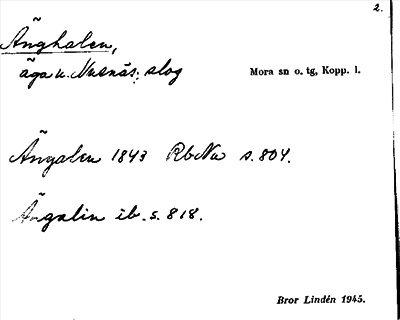 2.
Änghalen,
äga u. Nusnäs: slog
Mora sn o. tg, Kopp. l.
Ängalen 1843 RbNu s. 804.
Ängalin ib. s. 818.
Bror Lindén 1945.